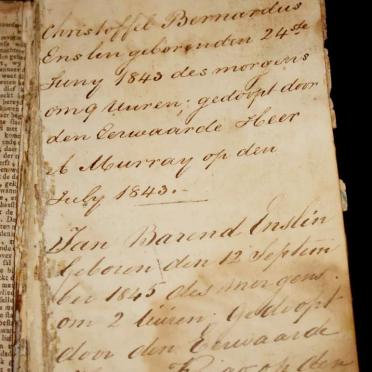 Christoffel Bernardus
Enslin geboren den 24ste
Juny 1843 des morgens
om 9 uuren; gedoopt door
den Eerwaarde Heer
A Murray op den
July 1843.-
Jan Barend Enslin
geboren den 12 Septem
ber 1845 des morgens.
om 2 uuren; gedoopt
door den Eerwaarde
op den